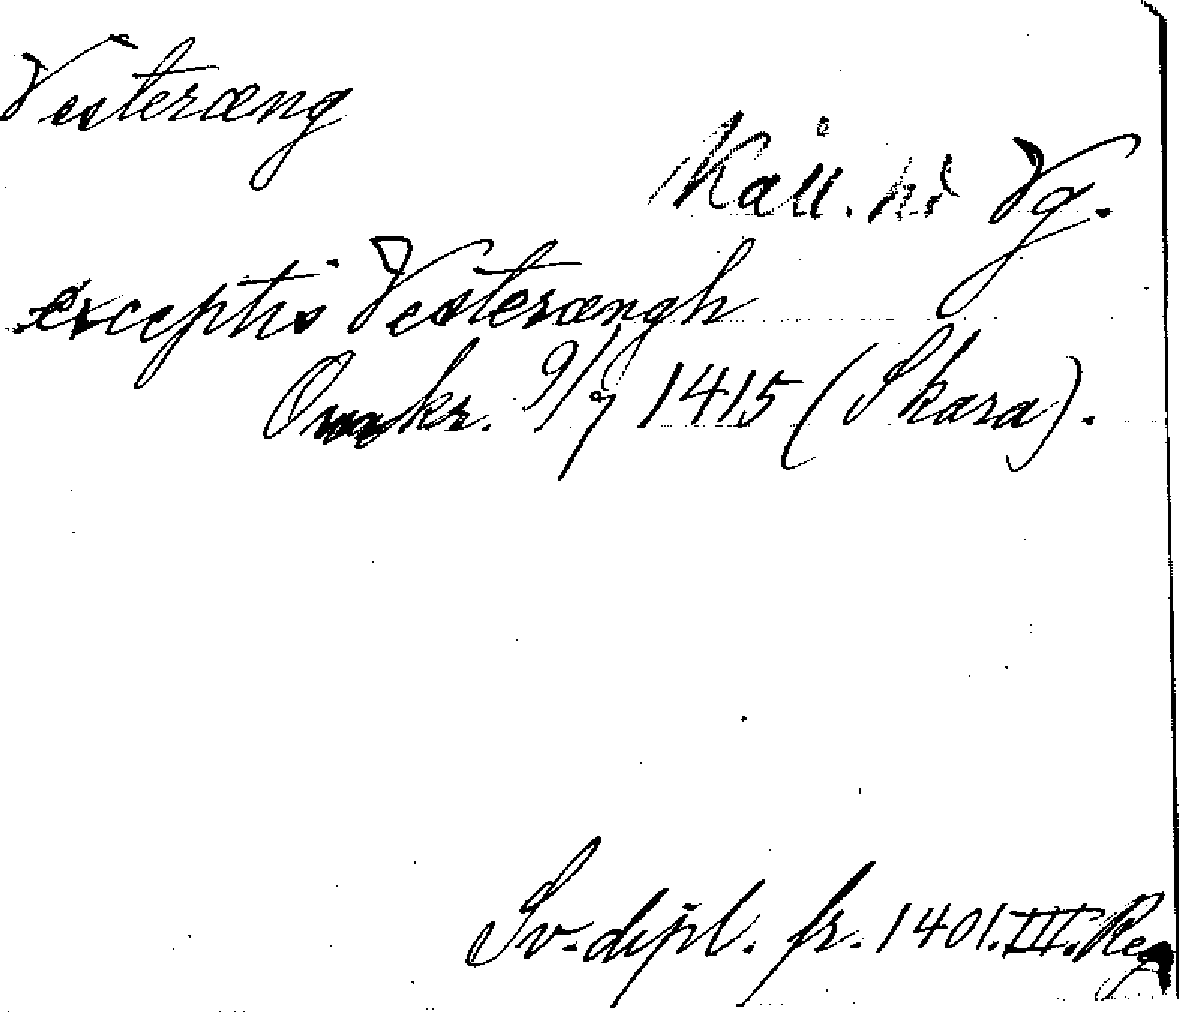 Vesteræng
Kåll. hd Vg.
exceptis Vesterængh
Omkr. 9/7 1415 (Skara).
Sv. dipl. fr. 1401. III. Reg